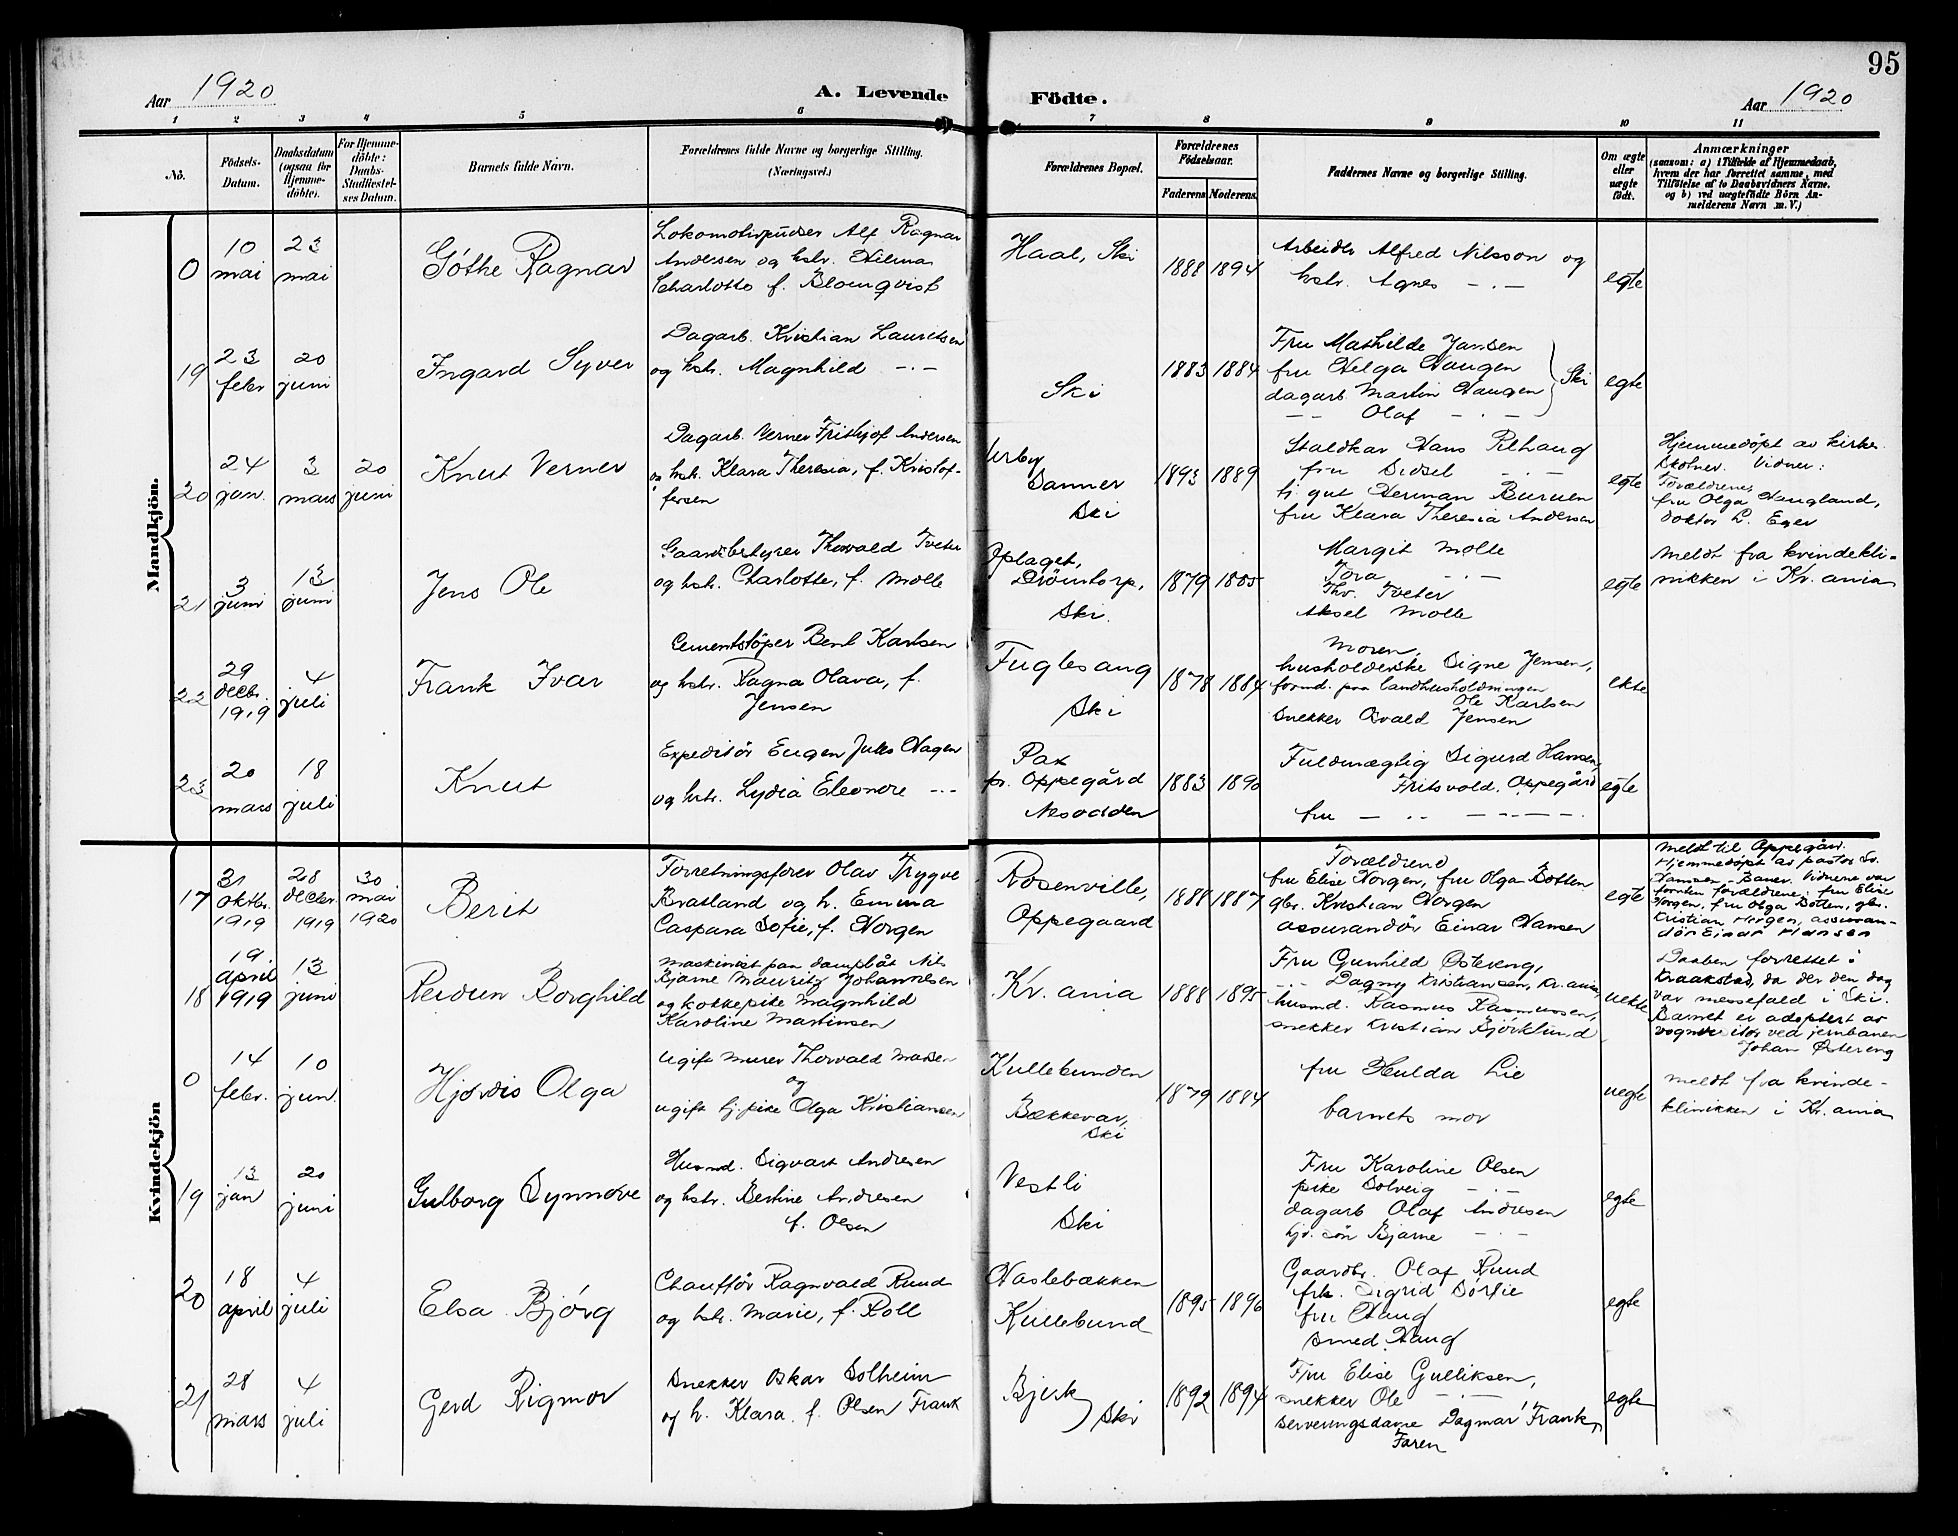 95
Aar 1920
A. Levende
Födte.
Aar 1920
1 2 3 4 5 6 7 8 9 10 11
No.
Födsels-
Datum.
Daabsdatum
(ogsaa for
Hjemme-
döbte).
For Hjemme-
döbte:
Daabs-
Stadfæstel-
ses Datum.
Barnets fulde Navn.
Forældrenes fulde Navne og borgerlige Stilling.
(Næringsvei.)
Forældrenes Bopæl.
Forældrenes
Födselsaar.
Faderens Moderens.
Faddernes Navne og borgerlige Stilling.
Om ægte
eller
uægte
födt.
Anmærkninger
(saasom: a) i Tilfælde af Hjemmedaab,
hvem der har forrettet samme, med
Tilföielse af to Daabsvidners Navne.
og b) ved uægtefödte Börn An-
melderens Navn m. V.)
Mandkjön.
0
10
mai
23
mai
Göthe Ragnar
Lokomotivpudser Alf Ragnar
Andersen og hstr. Hilma
Charlotte f. Blomqvist
Haal, Ski
1888 1894
Arbeider Alfred Nilsson og
hstr. Agnes - . -
egte
19
23
febr
20
juni
Ingard Syver
Dagarb. Kristian Lauritsen
og hstr. Magnhild - . -
Ski
1883 1884
Fru Mathilde Jansen
fru Helga Haugen
dagarb. Martin Haugen
- - Olaf - . -
Ski
egte
20
24
jan.
3
mars
20
juni
Knut Verner
Dagarb. Verner Frithjof Andersen
og hstr. Klara Theresia, f. Kristof-
fersen
Sanner
Ski
1893 1889
Staldkar Hans Rehaug
fru Sidsel - . -
tj. gut Herman Buruen
fru Klara Theresia Andersen
egte
Hjemmedøpt av kirke-
Vidner:
Forældrene,
fru Olga Haugland,
doktor L. Eger
21
3
juni
13
juni
Jens Ole
Gaardsbestyrer Thorvald Tveter
og hstr. Charlotte, f. Molle
Oplaget,
Drömtorp,
Ski.
1879 1885
Margit Molle
Tora - . -
Thv. Tveter
Aksel Molle
egte
Meldt fra kvindekli-
nikken i Kr.ania
22
29
decbr.
1919
4
juli
Frank Ivar
Cementstøper Bent Karlsen
og hstr. Ragna Olava, f.
Jensen
Fuglesang
Ski
1878 1884
Moren,
husholderske Signe Jensen,
formd. paa landhusholdningen
Ole Karlsen
snekker Osvald Jensen
ekte
23
20
mars
18
juli
Knut
Expeditör Eugen Julius Hagen
og hstr. Lydia Eleonore - -
Pax
pr. Oppegård
Nesodden
1883 1890
Fuldmægtig Sigurd Hansen,
Fritsvold, Oppegård
fru - . . - . . -
egte
Kvindekjön
17
31
oktbr.
1919
28
decbr.
1919
30
mai
1920
Berit
Forretningsfører Olav Trygve
Bratland og h. Emma
Caspara Sofie, f. Horgen
Rosenville,
Oppegaard
1888 1887
Forældrene
fru Elise Horgen, fru Olga Botten
gbr. Kristian Horgen
assurandör Einar Hansen
egte
Meldt til Oppegård.
Hjemmedøpt av pastor Sv.
Hanssen-Bauer. Vidnerne var
foruten forældrene: fru Elise
Horgen, fru Olga Botten, gbr.
Kristian Horgen, assuran-
dör Einar Hansen
18
19.
april
1919
13
juni
Reidun Borghild
Maskinist paa dampbåt Nils
Bjarne Mauritz Johannesen
og kokkepike Magnhild
Karoline Martinsen
Kr.ania
1888 1895
Fru Gunhild Østereng,
- . - Dagny Kristiansen, Kr.ania,
husmd. Rasmus Rasmussen,
snekker Kristian Björklund
uekte
Daaben forrettet i
Kraakstad, da der den dag
var messefald i Ski.
Barnet er adoptert av
vognvisitör ved jernbanen
Johan Østereng
0
14
febr.
10
jun.
Hjørdis Olga
Ugift murer Thorvald Madsen
og
ugift tj. pike Olga Kristiansen
Kullebunden
Bækkevar,
Ski
1879 1884
fru Hulda Lie
barnets mor
uegte
Meldt fra kvinde-
klinikken i Kr.ania
19
13
jan
20
juni
Gulborg Synnøve
Husmd. Sigvart Andresen
og hstr. Bertine Andresen
f. Olsen
Vestli
Ski
Fru Karoline Olsen
pike Solveig - . -
dagarb Olaf Andresen
hjv. sön Bjarne - . -
egte
20
18
april
4
juli
Elsa Bjørg
Chauffør Ragnvald Ruud
og hstr. Marie, f. Roll
Haslebækken
Kullebund
1895 1896
Gaardbr. Olaf Ruud
frk. Sigrid Sörlie
fru Haug
smed Haug
egte
21
28
mars
4
juli
Gerd Rigmor
Snekker Oskar Solheim
og h. Klara f. Olsen Frank
Bjerk
Ski
1892 1894
Fru Elise Gulliksen,
snekker Ole - . -
serveringsdame Dagmar Frank,
Faren
egte